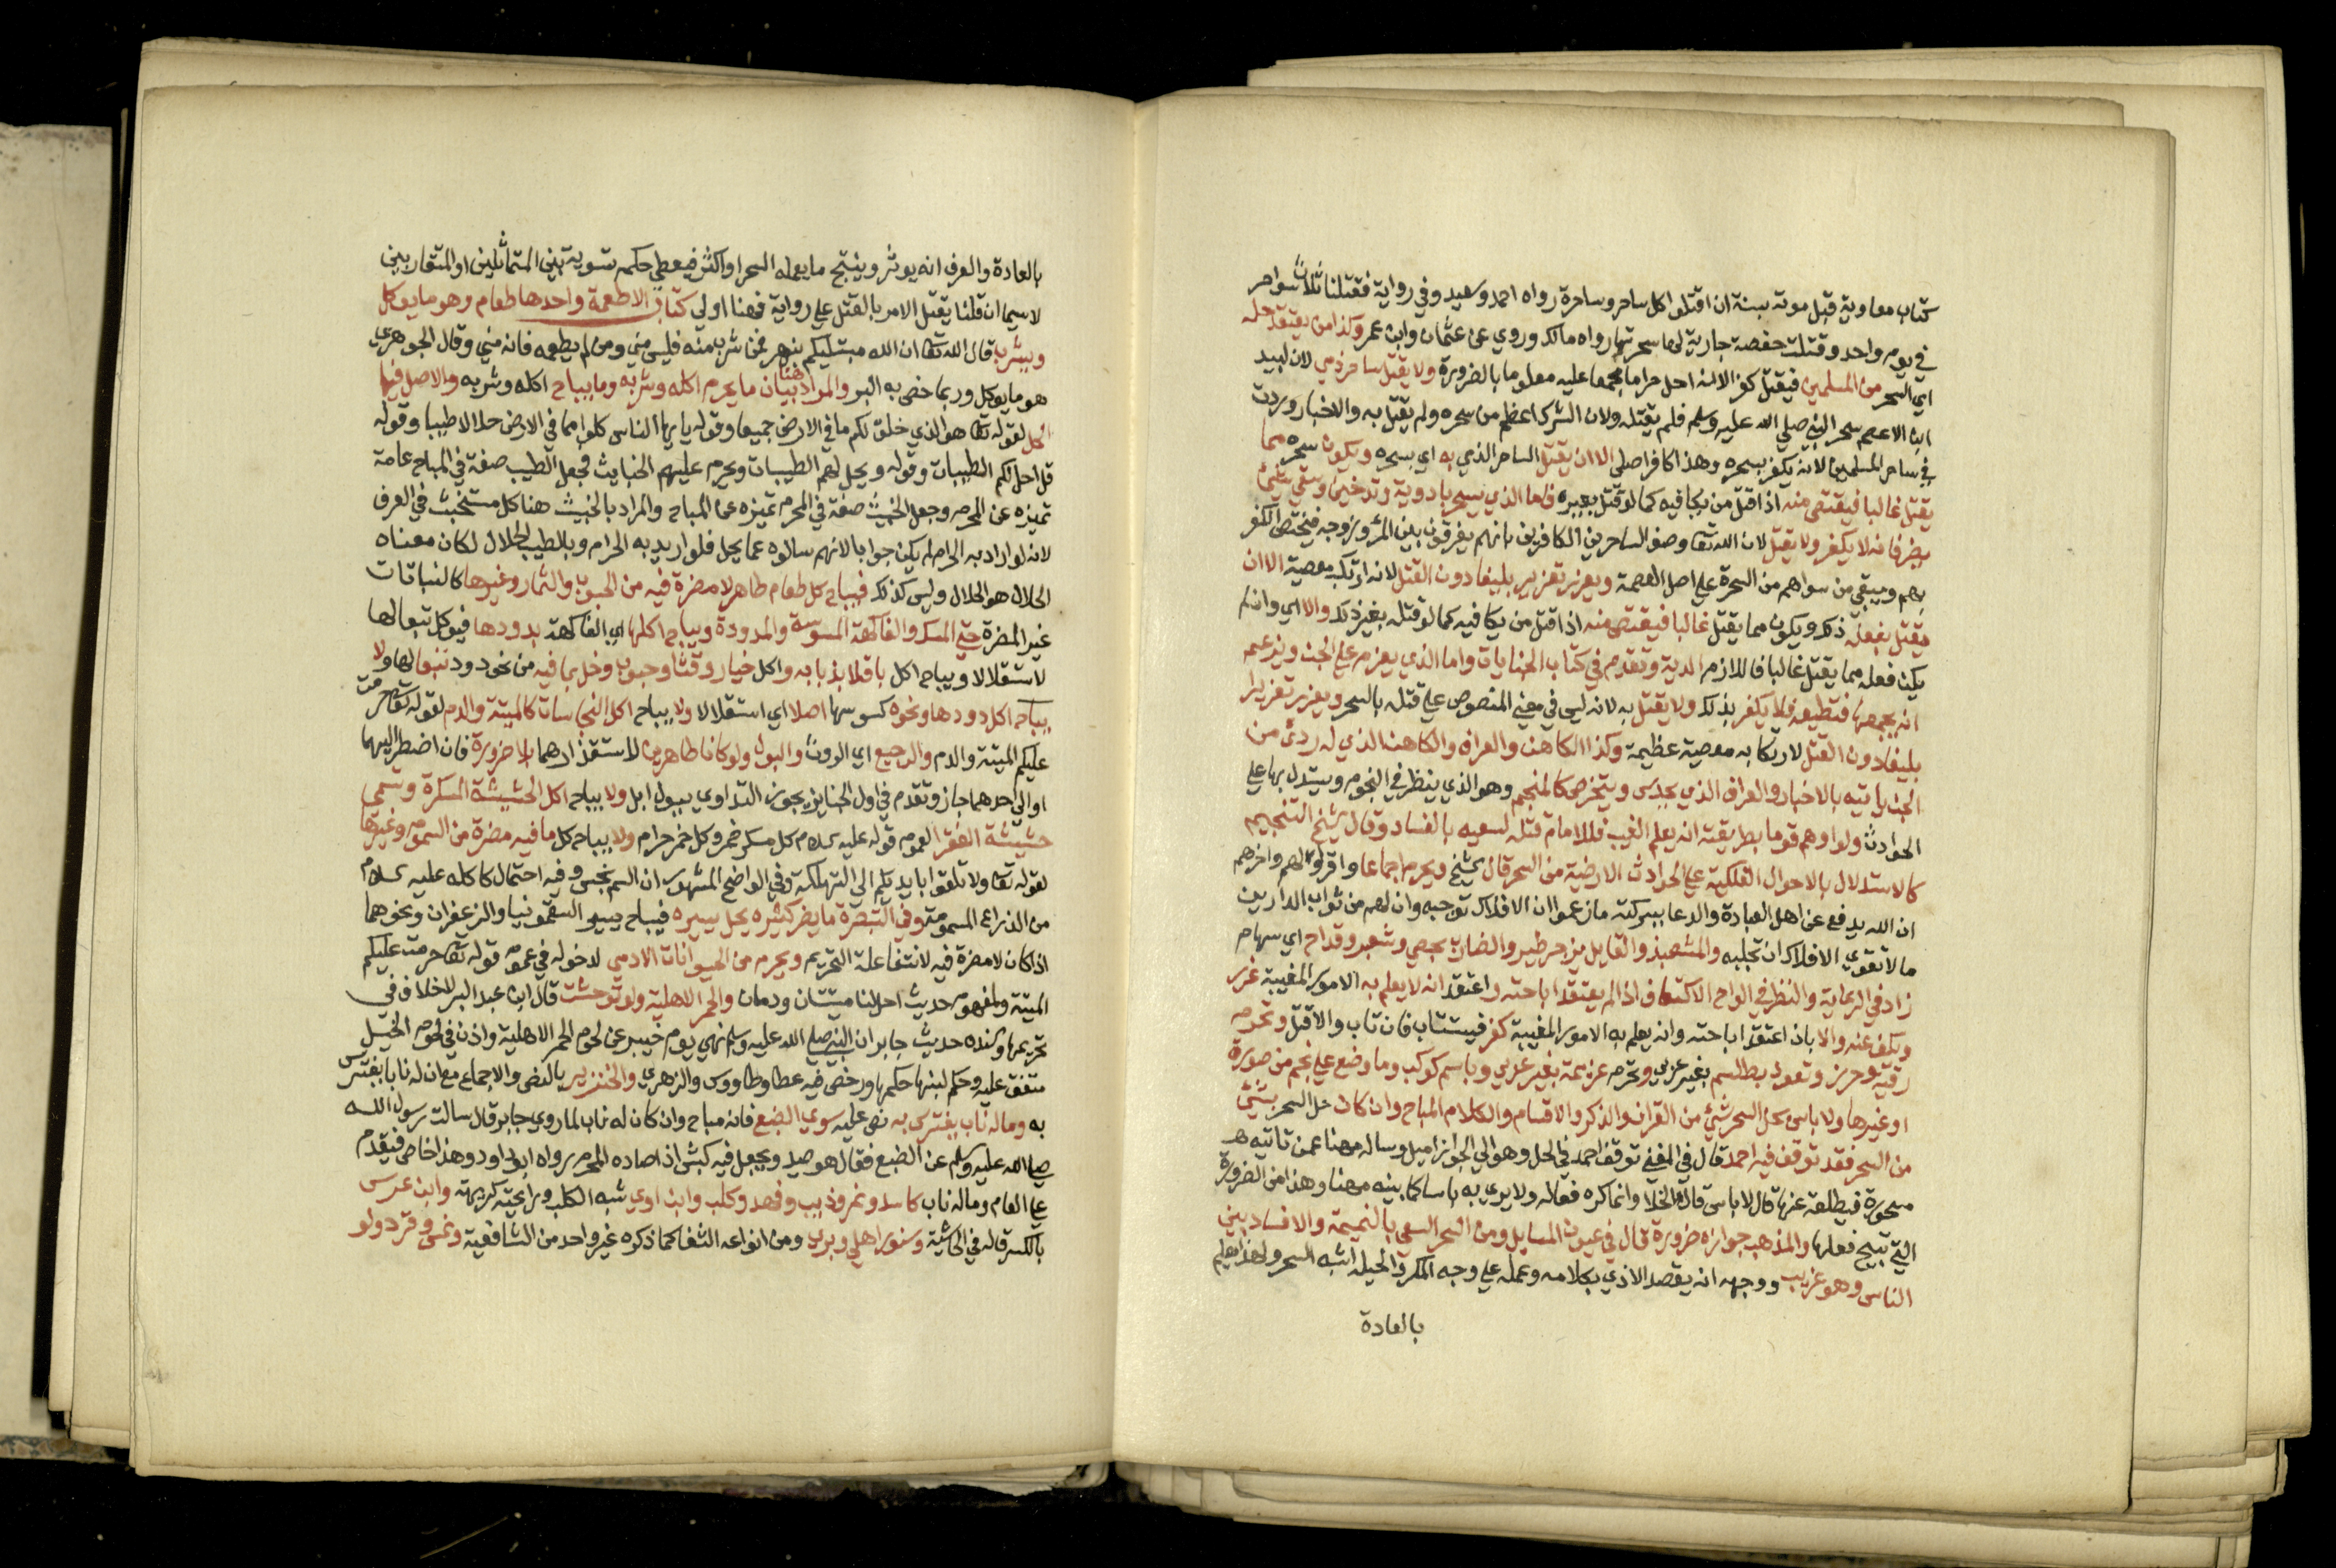 كتاب معاوية قبل موته بسنة ان اقتلوا كل ساحر وساحرة رواه احمد وسعيد وفي رواية فقتلنا ثلاث سواحر
في يوم واحد وقتلت حفصة جارية لها سحرتها رواه مالك وروي عن عثمان وابن عمر وكذا من يعتقد حله
اي السحر من المسلمين فيقتل كفرا لانه احل حراما مجمعا عليه معلوما بالضرورة ولا يقتل ساحر ذمي لان لبيد
ابن الاعصم سحر النبي صلي الله عليه وسلم فلم يقتله ولان الشرك اعظم من سحره ولم يقتل به والاخبار وردت
في ساحر المسلمين لانه يكفر بسحره وهذا كافر اصلي الا ان يقتل الساحر الذي به اي بسحره ويكون سحره مما
يقتل غالبا فيقتص منه اذا قتل من يكافيه كما لو قتل بغيره فاما الذي يسحر بادوية وتدخين وسقي شئ
يضر فانه لا يكفر ولا يقتل لان الله تعا وصف الساحرين الكافرين بانهم يفرقون بين المرء وزوجه فيختص الكفر
بهم ويبقي من سواهم من السحرة علي اصل العصمة ويعزر تعزيرا بليغا دون القتل لانه ارتكب معصية الا ان
يقتل بفعله ذلك ويكون مما يقتل غالبا فيقتص منه اذا قتل من يكافيه كما لو قتله بغير ذلك والا اي وان لم
يكن فعله مما يقتل غالبا فاللازم الدية وتقدم في كتاب الجنايات واما الذي يعزم علي الجن ويزعم
انه يجمعها فتطيعه فلا يكفر بذلك ولا يقتل به لانه ليس في معني المنصوص علي قتله بالسحر ويعزر تعزيرا
بليغا دون القتل لارتكابه معصية عظيمة وكذا الكاهن والعراف والكاهن الذي له رءي من
الجن ياتيه بالاخبار والعراف الذي يحدس ويتخرص كالمنجم وهو الذي ينظر في النجوم ويستدل بها علي
الحوادث ولو اوهم قوما بطريقته انه يعلم الغيب فللامام قتله لسعيه بالفساد وقال الشيخ التنجيم
كالاستدلال بالاحوال الفلكية علي الحوادث الارضية من السحر قال الشيخ ويحرم اجماعا واقر اولهم واخرهم
ان الله يدفع عن اهل العبادة والدعا ببركته ما زعموا ان الافلاك توجبه وان لهم من ثواب الدارين
ما لا تقوي الافلاك ان تجلبه والمشعبذ والقايل بزجر طير والضارب بحصي وشعير وقداح اي سهام
زاد في الرعاية والنظر في الواح الاكتاف اذا لم يعتقد اباحته واعتقد انه لا يعلم به الامور المغيبة عزر
ويكف عنه والا بان اعتقد اباحته وانه يعلم به الامور المغيبة كفر فيستتاب فان تاب والا قتل وتحرم
رقية وحرز وتعوذ بطلسم بغير عربي وتحرم عزيمة بغير عربي وباسم كوكب وما وضع علي نجم من صورة
او غيرها ولا باس بحل السحر بشئ من القران والذكر والاقسام والكلام المباح وان كان حل السحر بشئ
من السحر فقد توقف فيه احمد قال في المغني توقف احمد في الحل وهو الي الجواز اميل وساله مهنا عمن تاتيه
مسحورة فيطلقه عنها قال لا باس قال الخلال وانما كره فعاله ولا يري به باسا كما بينه مهنا وهذا من الضرورة
التي تبيح فعلها والمذهب جوازه ضرورة قال في عيون المسايل ومن السحر السعي بالنميمة والافساد بين
الناس وهو غريب ووجهه انه يقصد الاذي بكلامه وعمله علي وجه المكر والحيلة اشبه السحر ولهذا يعلم
بالعادة
بالعادة والعرف انه يوثر وينتج ما يعمله السحر او اكثر فيعطي حكمه تسوية بين المتماثلين او المتقاربين
لا سيما ان قلنا يقتل الامر بالقتل علي رواية فهنا اولي كتاب الاطعمة واحدها طعام وهو ما يوكل
ويشرب قال الله تعا ان الله مبتليكم بنهر فمن شرب منه فليس مني ومن لم يطعمه فانه مني وقال الجوهري
هو ما يوكل وربما خص به البر والمراد هنا بيان ما يحرم اكله وشربه وما يباح اكله وشربه والاصل فيها
الحل لقوله تعا هو الذي خلق لكم ما في الارض جميعا وقوله يا يها الناس كلوا مما في الارض حلالا طيبا وقوله
قل احل لكم الطيبات وقوله ويحل لهم الطيبات ويحرم عليهم الخبايث فجعل الطيب صفة في المباح عامة
تميزه عن المحرم وجعل الخبيث صفة في المحرم تميزه عن المباح والمراد بالخبيث هنا كل مستخبث في العرف
لانه لو اراد به الحرام لم يكن جوابا لانهم سالوه عما يحل فلو اريد به الحرام وبالطيب الحلال لكان معناه
الحلال هو الحلال وليس كذلك فيباح كل طعام طاهر لا مضرة فيه من الحبوب والثمار وغيرها كالنباتات
غير المضرة حتي المسك والفاكهة المسوسة والمدودة ويباح اكلها اي الفاكهة بدودها فيوكل تبعا لها
لا استقلالا ويباح اكل باقلا بذبابه واكل خيار وقثا وحبوب وخل بما فيه من نحو دود تبعا لها ولا
يباح اكل دودها ونحوه كسوسها اصلا اي استقلالا ولا يباح اكل النجاسات كالميتة والدم لقوله تعا حرمت
عليكم الميتة والدم والرجيع اي الروث والبول ولو كانا طاهرين لاستقذارهما بلا ضرورة فان اضطر اليهما
او الي احدهما جاز وتقدم في اول الجنايز يجوز التداوي ببول ابل ولا يباح اكل الحشيشة المسكرة وتسمي
حشيشة الفقرا لعموم قوله عليه السلام كل مسكر خمر وكل خمر حرام ولا يباح كل ما فيه مضرة من السموم وغيرها
لقوله تعا ولا تلقوا بايديكم الي التهلكة وفي الواضح المشهور ان السم نجس وفيه احتمال كاكله عليه السلام
من الذراع المسمومة وفي التبصرة ما يضر كثيره يحل يسيره فيباح يسير السقمونيا والزعفران ونحوهما
اذا كان لا مضرة فيه لانتفا علة التحريم ويحرم من الحيوانات الادمي لدخوله في عموم قوله تعا حرمت عليكم
الميتة ولمفهوم حديث احل لنا ميتتان ودمان والحمر الاهلية ولو توحشت قال ابن عبد البر لا خلاف في
تحريمها وسنده حديث جابر ان النبي صلي الله عليه وسلم نهي يوم خيبر عن لحوم الحمر الاهلية واذن في لحوم الخيل
متفق عليه وحكم لبنها حكمها ورخص فيه عطا وطاووس والزهري والخنزير بالنص والاجماع مع ان له نابا يفترس
به وما له ناب يفترس به نص عليه سوي الضبع فانه مباح وان كان له ناب لما روي جابر قال سالت رسول الله
صلي الله عليه وسلم عن الضبع فقال هو صيد ويجعل فيه كبش اذا صاده المحرم رواه ابو داود وهذا خاص فيقدم
علي العام وما له ناب كاسد ونمر وذيب وفهد وكلب وابن اوي شبه الكلب ورايحته كريهة وابن عرس
بالكسر قاله في الحاشية وسنور اهلي وبري ومن انواعه التفا كما ذكره غير واحد من الشافعية ونمس وقرد ولو